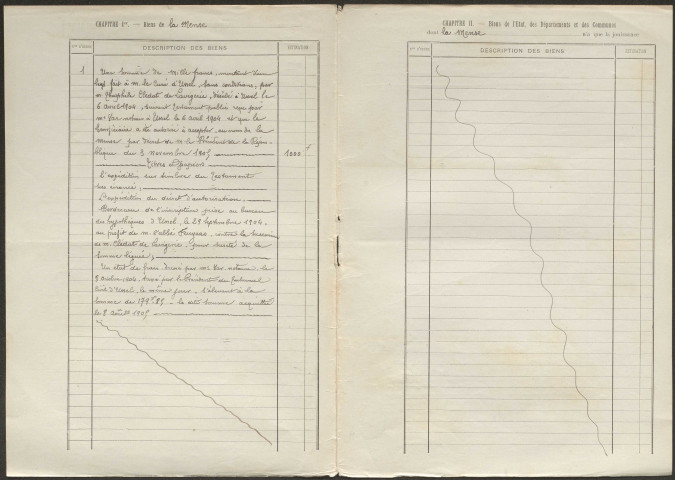 CHAPITRE Ier. — Biens de la Mense
Nos d'ordre DESCRIPTION DES BIENS ESTIMATION
1 Une somme de mille francs, montant d'un
legs fait à M. le Curé d'Ussel, sans conditions, par
M. Théophile de Lavigerie, décédé à Ussel le
6 avril 1904, suivant testament public reçu par
Me Var notaire à Ussel le 6 avril 1904, et que le
bénéficiaire a été autorisé à accepter, au nom de la
mense, par décret de M. le Président de la Répu-
blique du 3 novembre 1905 1000 f
Titres et Papiers
L'expédition sur timbre du testament
sus énoncé ;
L'expédition du décret d'autorisation ;
Bordereau d'inscription prise au bureau
des hypothèques d'Ussel, le 29 septembre 1904,
au profit de M. l'abbé contre la succession
de M. de Lavigerie, pour sûreté de la
somme léguée ;
Un état de frais dressé par Me Var notaire, le
8 1905, taxé par le Président du Tribunal
Civil d'Ussel, le même jour, s'élevant à la
somme de 179f 85 la dite somme acquittée
le 8 1905
CHAPITRE II. — Biens de l'Etat, des Départements et des Communes
dont la Mense n'a que la jouissance
Nos d'ordre DESCRIPTION DES BIENS ESTIMATION